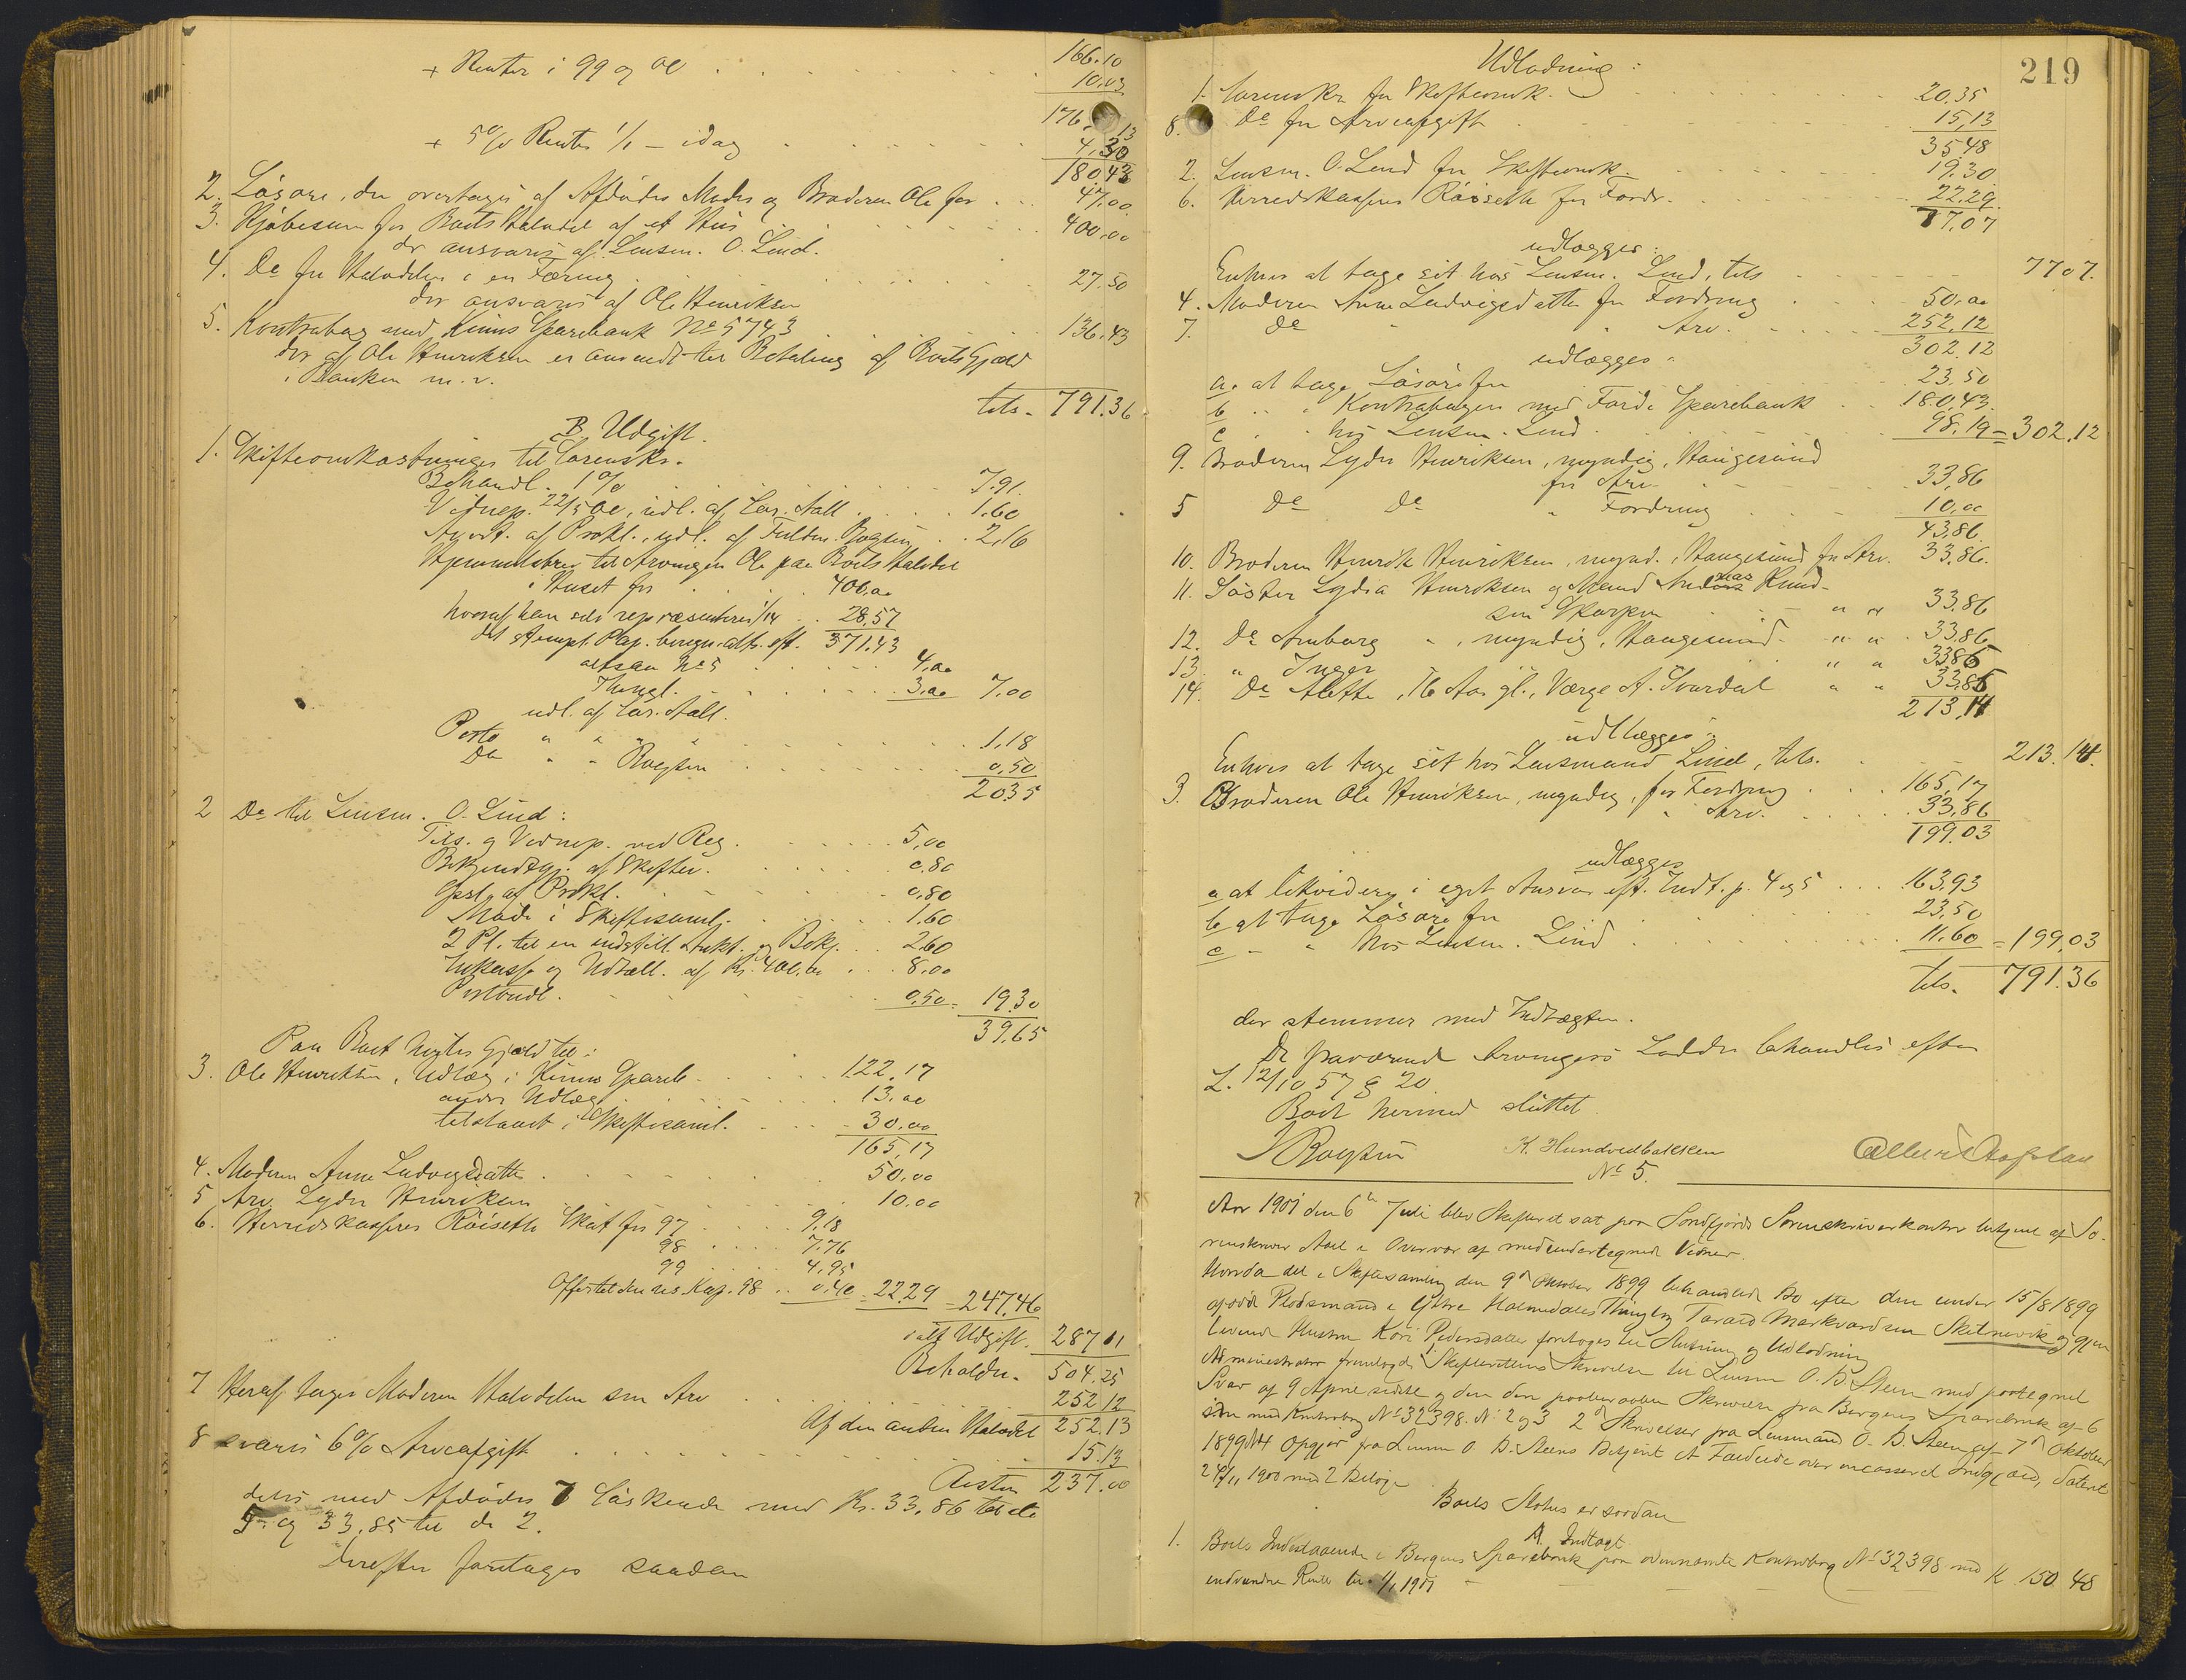 166.10
+ Renter i 99 og 00 . . . 10.03
176.13
+ 5% Renter 1/1 – idag . . . 4,30
180.43
2. Løsøre, der overtages af Afdødes Moder og Broderen Ole for . . . 47,00
3. Kjøbesum for Boets Halvdel af et Hus . . . 400,00
der ansvares af Lensm. O. Lind.
4. Do for Halvdelen i en Færing . . . 27.50
der ansvares af Ole Henriksen
5. Kontrabog med Kinns Sparebank No 5743 . . . 136.43
der af Ole Henriksen er anvendt til Betaling af Boets Gjæld
i Banken m. v.
tils. 791.36
B. Udgift.
1. Skifteomkostninger til Sorenskr.
Behandl. 1% . . . 7.91.
Vidnep. 22/5 00, udl. af Sor. Aall . . . 1.60
Avert. af Prokl., udl. af Fuldm. Rogsten . . 2,16
Hjemmelsbrev til Arvingen Ole paa Boets Halvdel
i Huset for . . . 400,00
hvoraf han selv repræsenterer 1/14 . . 28,57
371.43
altsaa No 5 . . . 4,00
Thingl. . . . 3.00 7.00
udl. af Sor. Aall.
Porto " " " " . . . 1.18
Do " " Rogsten . . . 0,50
20.35
2 Do til Lensm. O. Lind:
Tils. og Vidnep. ved Reg. . . . 5,00
Bekjendtgj. af Skiftet . . . 0.80
Opsl. af Prokl. . . . 0,80
Møde i Skiftesaml. . . . 1.60
2 Pl. til en indstill. Aukt. og Bekj. . . 2.60
Inkasso og Udbetall. af Kr. 400.00 . . . 8.00
Portoudl. . . . 0,50 = 19.30
39.65
Paa Boet hviler Gjæld til:
3. Ole Henriksen, Udlæg i Kinns Spareb. . . . 122.17
andre Udlæg . . . 13.00
tilstaaet i Skiftesaml. . . . 30,00
165,17
4. Moderen Anne Ludvigsdatter . . . 50,00
5 Arv. Lyder Henriksen . . . 10.00
6. Herredskasserer Röiseth Skat for 97 . . . 9.18
98 . . . 7.76
99 . . . 4.95
98 . . 0.40 = 22.29 = 247.46
ialt Udgift. 287 11
Beholdn. 504.25
7 Heraf tager Moderen Halvdelen som Arv . . . 252 12
Af den anden Halvdel 252.13
8 svares 6% Arveafgift . . . 15.13
Resten 237.00
deles med Afdødes 7 Søskende med Kr. 33.86 til de
5 og 33.85 til de 2.
Derefter foretages saadan
219
Udlodning:
1. Sorenskr. for Skifteomk. . . . 20.35
8. Do for Arveafgift . . . 15,13
35.48
2. Lensm. O. Lind for Skifteomk. . . . 19.30
6. Herredskasserer Röiseth for Fordr. . . . 22.29.
77,07
udlægges:
Enhver at tage sit hos Lensm. Lind, tils . . . 77 07.
4. Moderen Anne Ludvigsdatter for Fordring . . . 50,00
7. Do " " Arv. . . . 252.12
302.12
udlægges:
a. at tage Løsøre for . . . 23.50
b " " Kontrabogen med Førde Sparebank . . 180.43
c " " hos Lensm. Lind . . . 98.19 = 302.12
9. Broderen Lyder Henriksen, myndig, Haugesund
for Arv. . . . 33,86
5 Do Do " Fordring . . . 10,00
43,86
10. Broderen Henrik Henriksen, mynd., Haugesund for Arv. 33,86.
11. Søster Lydia Henriksen og Mand Andreas Knud-
sen " " 33.86
12. Do Amborg " , myndig, Haugesund " " . 33,86
13. " Inger " " 33.85
14. Do Alette, 16 Aar gl., Værge A. Svardal " " 33.85
213,14
udlægges:
Enhver at tage sit hos Lensmand Lind, tils. . . . 213.14.
3. Broderen Ole Henriksen, myndig, for Fordring . . . 165,17
" Arv. . . . 33,86
199.03
udlægges
a at likvidere i eget Ansvar eft. Indt. p. 4 og 5 . . . 163.93
b at tage Løsøre for . . . 23,50
c " " hos Lensm. Lind . . . 11.60 = 199,03
tils. 791.36
der stemmer med Indtægten.
De fraværende Arvingers Lodder behandles efter
L. 12/10 57 § 20.
Boet hermed sluttet.
Rogsten K. Hundvedbakken
No 5.
Aar 1901 den 6te Juli blev Skifteret sat paa Søndfjords Sorenskriverkontor betjent af So-
renskriver Aall i Overvær af medundertegnede Vidner.
Hvorda det i Skiftesamling den 9de Oktober 1899 behandlede Bo efter den under 15/8 1899
afdøde Plodsmand i Yttre Holmedals Thinglag Tarald Markvardsen Skilnevik og gjen
levende Hustru Kari Pedersdatter foretoges til Slutning og Udlodning
Administrator fremlagde Skifterettens Skrivelse til Lensm O. B. Steen med paategnet
Svar af 9 April sidstl. og den deri paaberaabte Skrivelse fra Bergens Sparebank af 6
s. m. med Kontrabog No 32398. No 2 og 3 2de Skrivelser fra Lensmand O. B. Steen af 7de Oktober
1899 No 4 Opgjør fra Lensm O. B. Steens Betjent A Farsteide over incasseret Indgjæld, dateret
24/11 1900 med 2 Bilage
Boets Status er saadan
A. Indtægt
1. Boets Indestaaende i Bergens Sparebank paa ovennævnte Kontrabog No 32398 med
indvundne Renter til 1/1 1901 – – – K 150 48